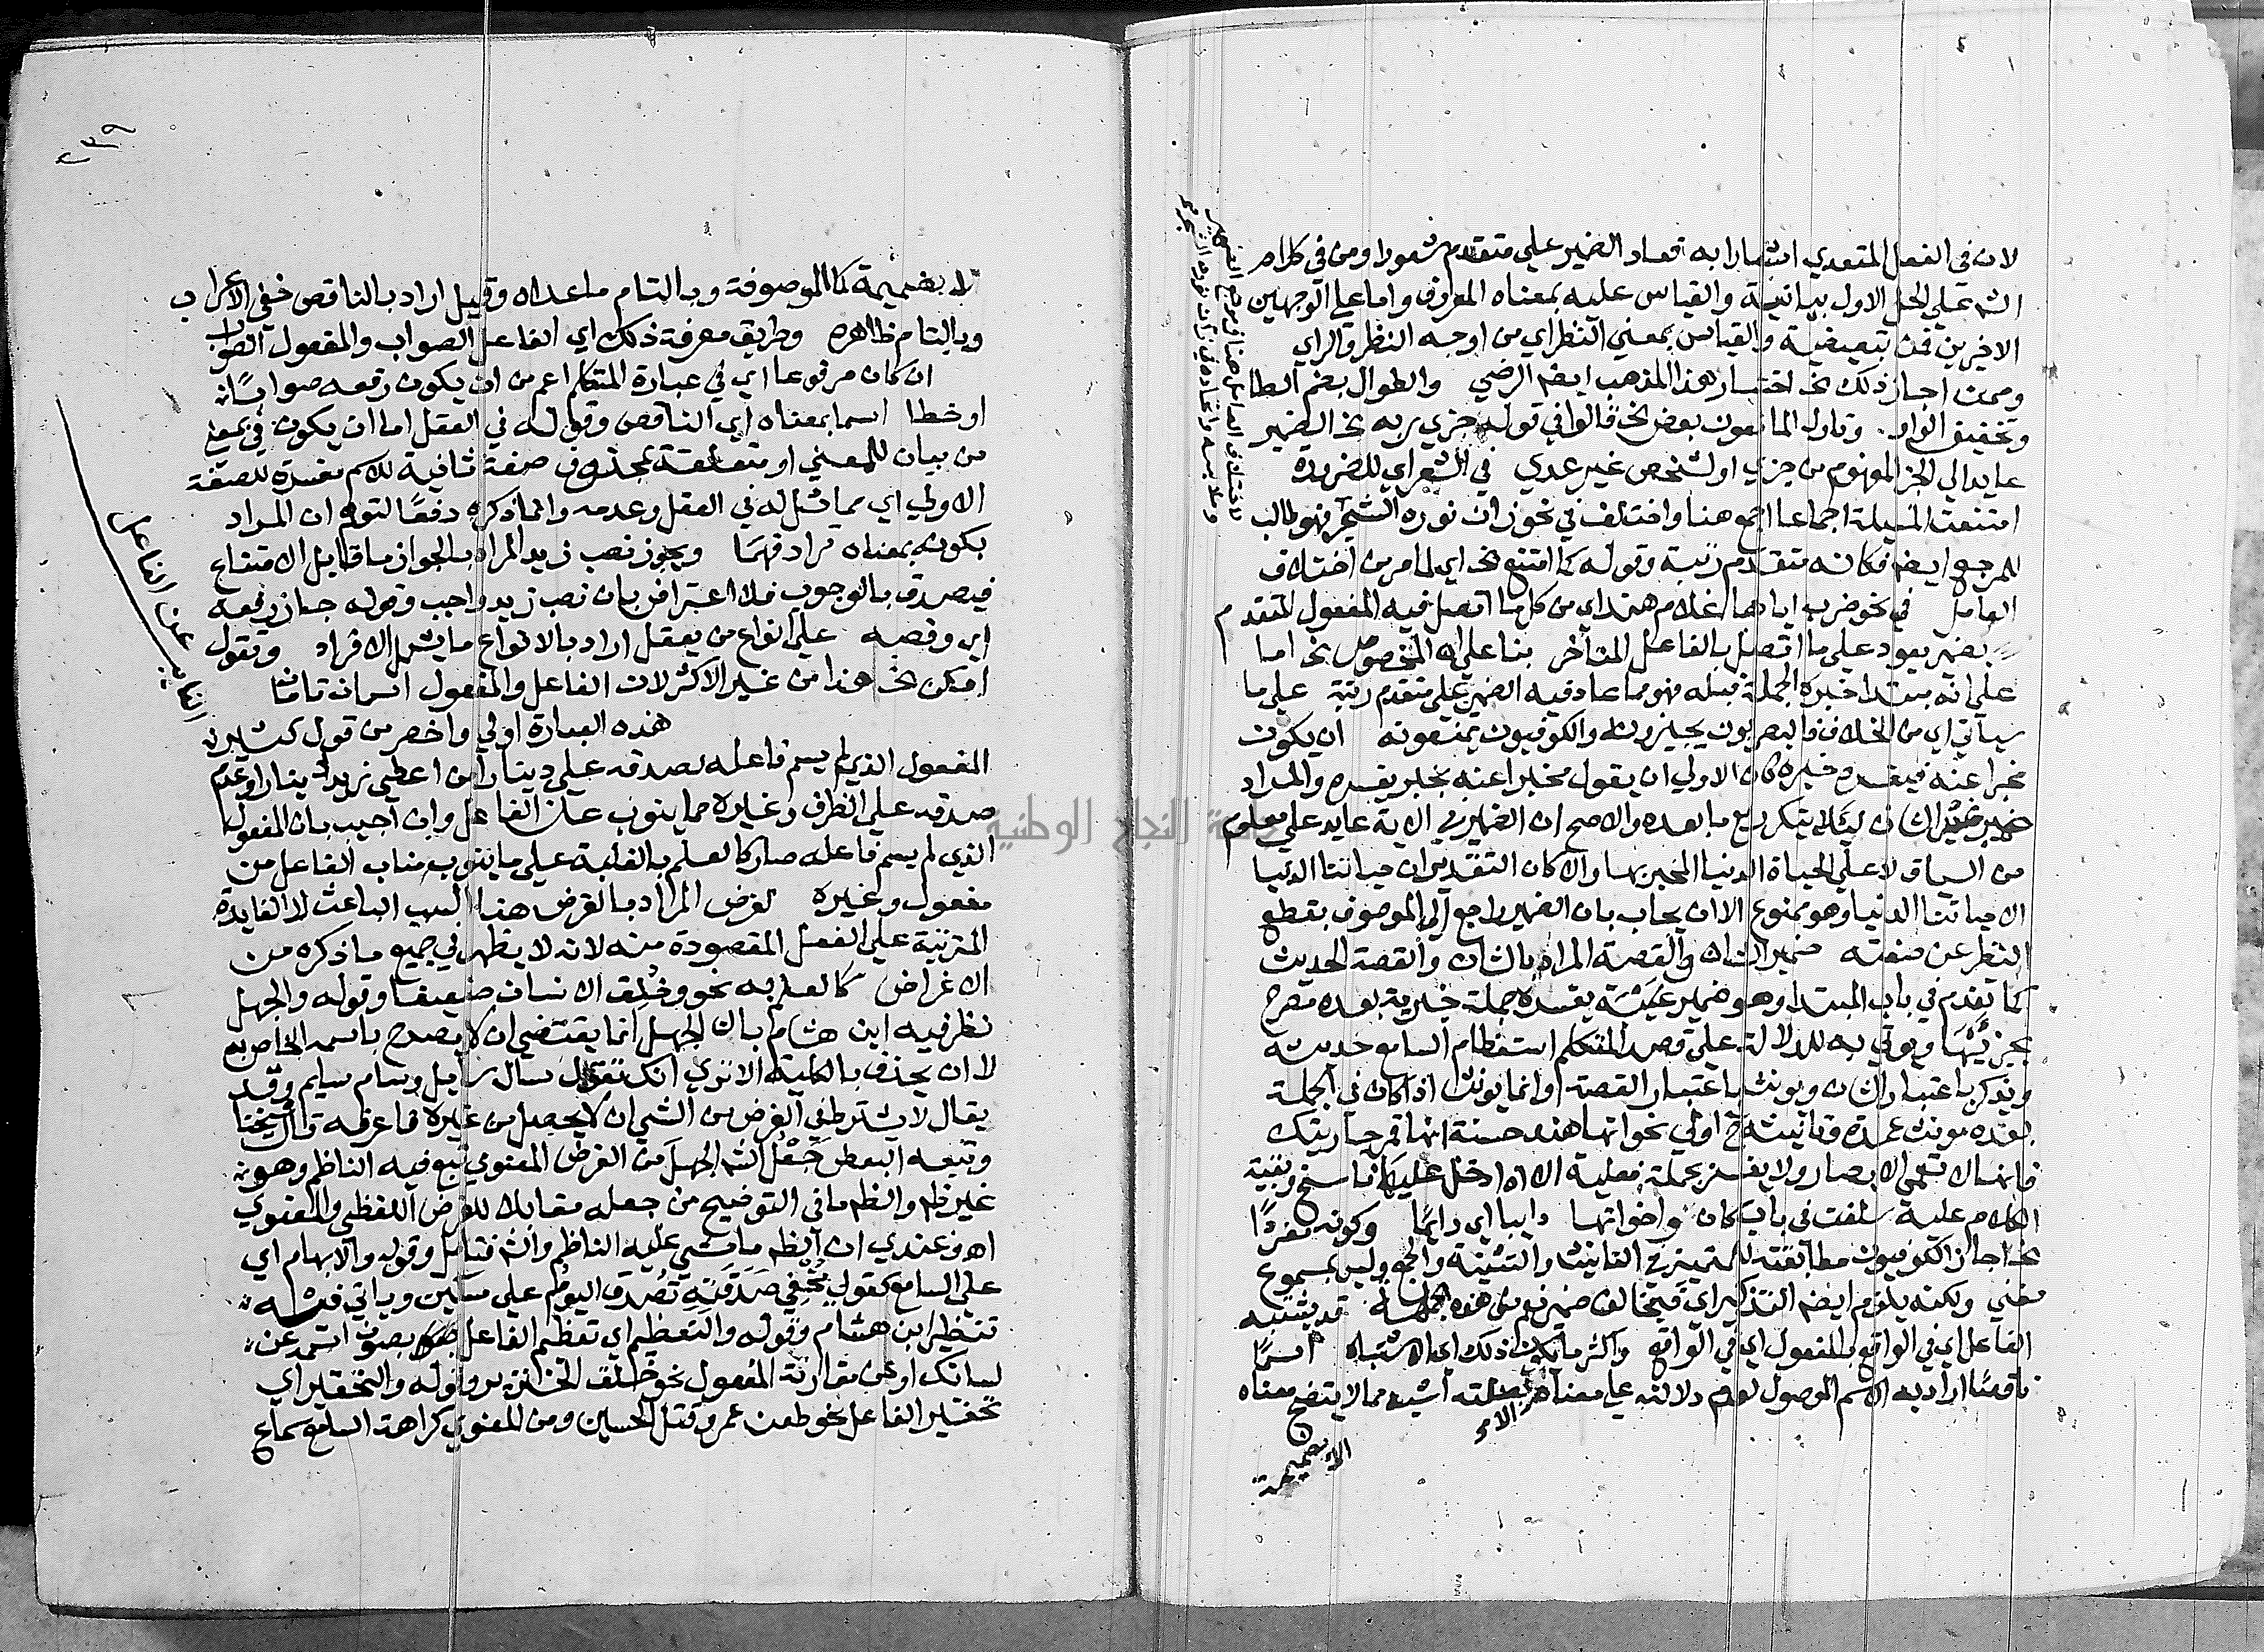 لان في الفعل المتعدي اشعارا به فعاد الضمير علي متقدم شعورا ومن في كلام
الش علي الحل الاول بيانية والقياس عليه بمعناه المعروف واما علي الوجهين
الاخيرين فمن تبعيضية والقياس بمعني النظر اي من اوجه النظر والراي
وممن اجاز ذلك الخ اختار هذا المذهب ايضا الرضي والطوال بضم الطا
وتخفيف الواو وتاول المانعون بعض الخ قالوا في قوله جزي ربه الخ الضمير
عايد الي الجزا المفهوم من جزي او لشخص غير عدي في الشعر اي للضرورة
امتنعت المسيلة اجماعا اجمع هنا واختلف في نحو زان نوره الشجر فهو طالب
للمرجع ايضا فكانه متقدم رتبة وقوله كما امتنع الخ اي لما مر من اختلاف
العامل في نحو ضرب اباها غلام هند اي من كل ما اتصل فيه المفعول المتقدم
بضمير يعود علي ما اتصل بالفاعل المتأخر بنا علي ان المخصوص الخ اما
علي انه مبتدا خبره الجملة قبله فهو مما عاد فيه الضمير علي متقدم رتبة علي ما
سيأتي اي من الخلاف فالبصريون يجيزونه والكوفيون يمنعونه ان يكون
مخبرا عنه فيفسره خبره كان الاولي ان يقول مخبرا عنه بخبر يفسره والمراد
ضمير غير الشان ليلا يتكرر مع ما بعده والاصح ان الضمير في الاية عايد علي معلوم
من السياق لا علي الحياة الدنيا المخبر بها والا كان التقدير ان حياتنا الدنيا
الا حياتنا الدنيا وهو ممنوع الا ان يجاب بان الضمير راجع الي الموصوف بقطع
النظر عن صفته ضمير الشان والقصة المراد بالشان والقصة الحديث
كما تقدم في باب المبتدا وهو ضمير غيبة يفسره جملة خبرية بعده مصرح
بجزئيها ويوتي به للدلالة علي قصد المتكلم استعظام السامع حديثه
ويذكر باعتبار الشان ويونث باعتبار القصة وانما يونث اذا كان في الجملة
بعده مونث عمدة وتانيثه ح اولي نحو انها هند حسنة انها قمر جاريتك
فانها لا تعمي الابصار ولا يفسر بجملة فعلية الا اذا دخل عليها ناسخ وبقية
الكلام عليه سلفت في باب كان واخواتها دايبا اي دايما وكونه مفردا
الخ اجاز الكوفيون مطابقته للتمييز في التانيث والتثنية والجمع وليس بمسموع
مغني ولكنه يلزم ايضا التذكير اي فيخالف ضمير نعم من هذه الجهة قد يشتبه
الفاعل اي في الواقع بالمفعول اي في الواقع واكثر ما يكون ذلك اي الاشتباه اسما
ناقصا اراد به الاسم الموصول لعدم دلالته علي معناه الا بصلته اشبه مما لا يتضح معناه
الا بضميمة
لا بضميمة كما الموصوفة وبالتام ما عداه وقيل اراد بالناقص خفي الاعراب
وبالتام ظاهره وطريق معرفة ذلك اي الفاعل الصواب والمفعول الصواب
ان كان مرفوعا اي في عبارة المتكلم اعم من ان يكون رفعه صوابا
او خطا اسما بمعناه اي الناقص وقوله في العقل اما ان يكون في بمعني
من بيان للمعني او متعلقة بمحذوف صفة ثانية للاسم مفسرة للصفة
الاولي اي مماثل له في العقل وعدمه وانما ذكره دفعا لتوهم ان المراد
بكونه بمعناه ترادفهما ويجوز نصب زيد المراد بالجواز ما قابل الامتناع
فيصدق بالوجوب فلا اعتراض بان نصب زيد واجب وقوله جاز رفعه
اي ونصبه علي انواع من يعقل اراد بالانواع ما يشمل الافراد وتقول
امكن الخ هذا من غير الاكثر لان الفاعل والمفعول اسمان تامان
النايب عن الفاعل
هذه العبارة اولي واخصر من قول كثيرين
المفعول الذي لم يسم فاعله لصدقه علي دينارا من اعطي زيد دينارا وعدم
صدقه علي الظرف وغيره مما ينوب عن الفاعل وان اجيب بان المفعول
الذي لم يسم فاعله صار كالعلم بالغلبة علي ما ينوب مناب الفاعل من
مفعول وغيره لغرض المراد بالغرض هنا السبب الباعث لا الفايدة
المترتبة علي الفعل المقصودة منه لانه لا يظهر في جميع ما ذكره من
الاغراض كالعلم به نحو وخلق الانسان ضعيفا وقوله والجهل
نظر فيه ابن هشام بان الجهل انما يقتضي ان لا يصرح باسمه الخاص به
لا ان يحذف بالكلية الا تري انك تقول سال سايل وسام سايم وقد
يقال لا يشترط في الغرض من الشي ان لا يحصل من غيره فاعرفه قال شيخنا
وتبعه البعض جعل الش الجهل من الغرض المعنوي تبع فيه الناظم وهو
غير ظ والظ ما في التوضيح من جعله مقابلا للغرض اللفظي والمعنوي
اه وعندي ان الظ ما مشي عليه الناظم والش فتامل وقوله والابهام اي
علي السامع كقول مخفي صدقته تصدق اليوم علي مسكين وياتي فيه
تنظير ابن هشام وقوله والتعظيم اي تعظيم الفاعل بصون اسمه عن
لسانك او عن مقارنة المفعول نحو خلق الخنزير وقوله والتحقير اي
تحقير الفاعل نحو طعن عمر وقتل الحسين ومن المعنوي كراهة السامع سماع